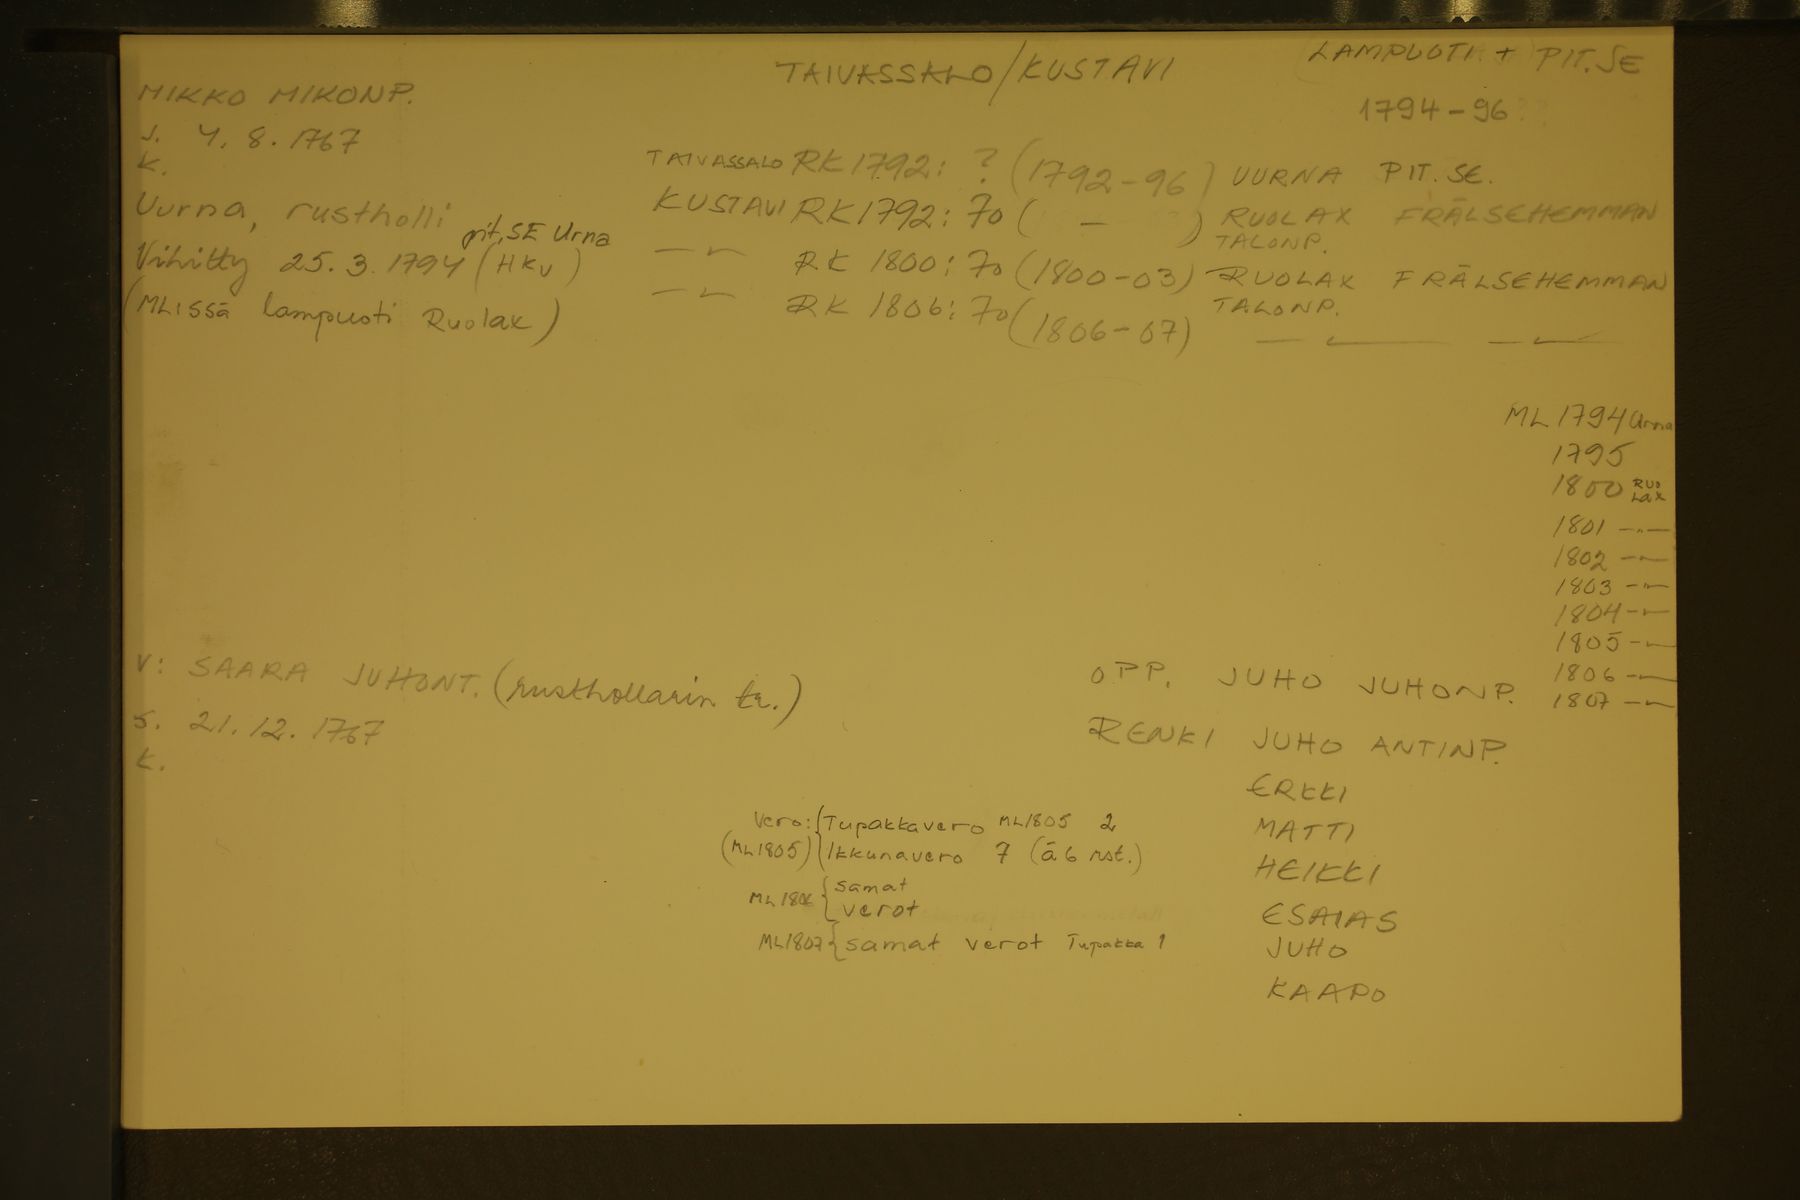 TAIVASSALO/KUSTAVI
(LAMPUOTI + PIT.SE
1794-96??
MIKKO MIKONP.
S. 4.8.1767
K.
Uurna, rustholli
pit.SE Urna
Vihitty 25.3.1794 (HKv)
(ML:ssä lampuoti Ruolax)
TAIVASSALO RK 1792: ? (1792-96) UURNA PIT.SE.
KUSTAVI RK 1792: 70 ( - ) RUOLAX FRÄLSEHEMMAN
TALONP.
-"- RK 1800: 70 (1800-03) RUOLAX FRÄLSEHEMMAN
TALONP.
-"- RK 1806: 70 (1806-07) -"- -"-
ML 1794 Urna
1795
1800 RUOLAX
1801 -"-
1802 -"-
1803 -"-
1804 -"-
1805 -"-
1806 -"-
1807 -"-
V: SAARA JUHONT. (rusthollarin tr.)
S. 21.12.1767
K.
OPP. JUHO JUHONP.
RENKI JUHO ANTINP.
ERKKI
MATTI
HEIKKI
ESAIAS
JUHO
KAAPO
Vero: {Tupakkavero ML1805 2
(ML1805) {Ikkunavero 7 (à 6 rst.)
ML1806 {samat
verot
ML1807 {samat verot Tupakka 1